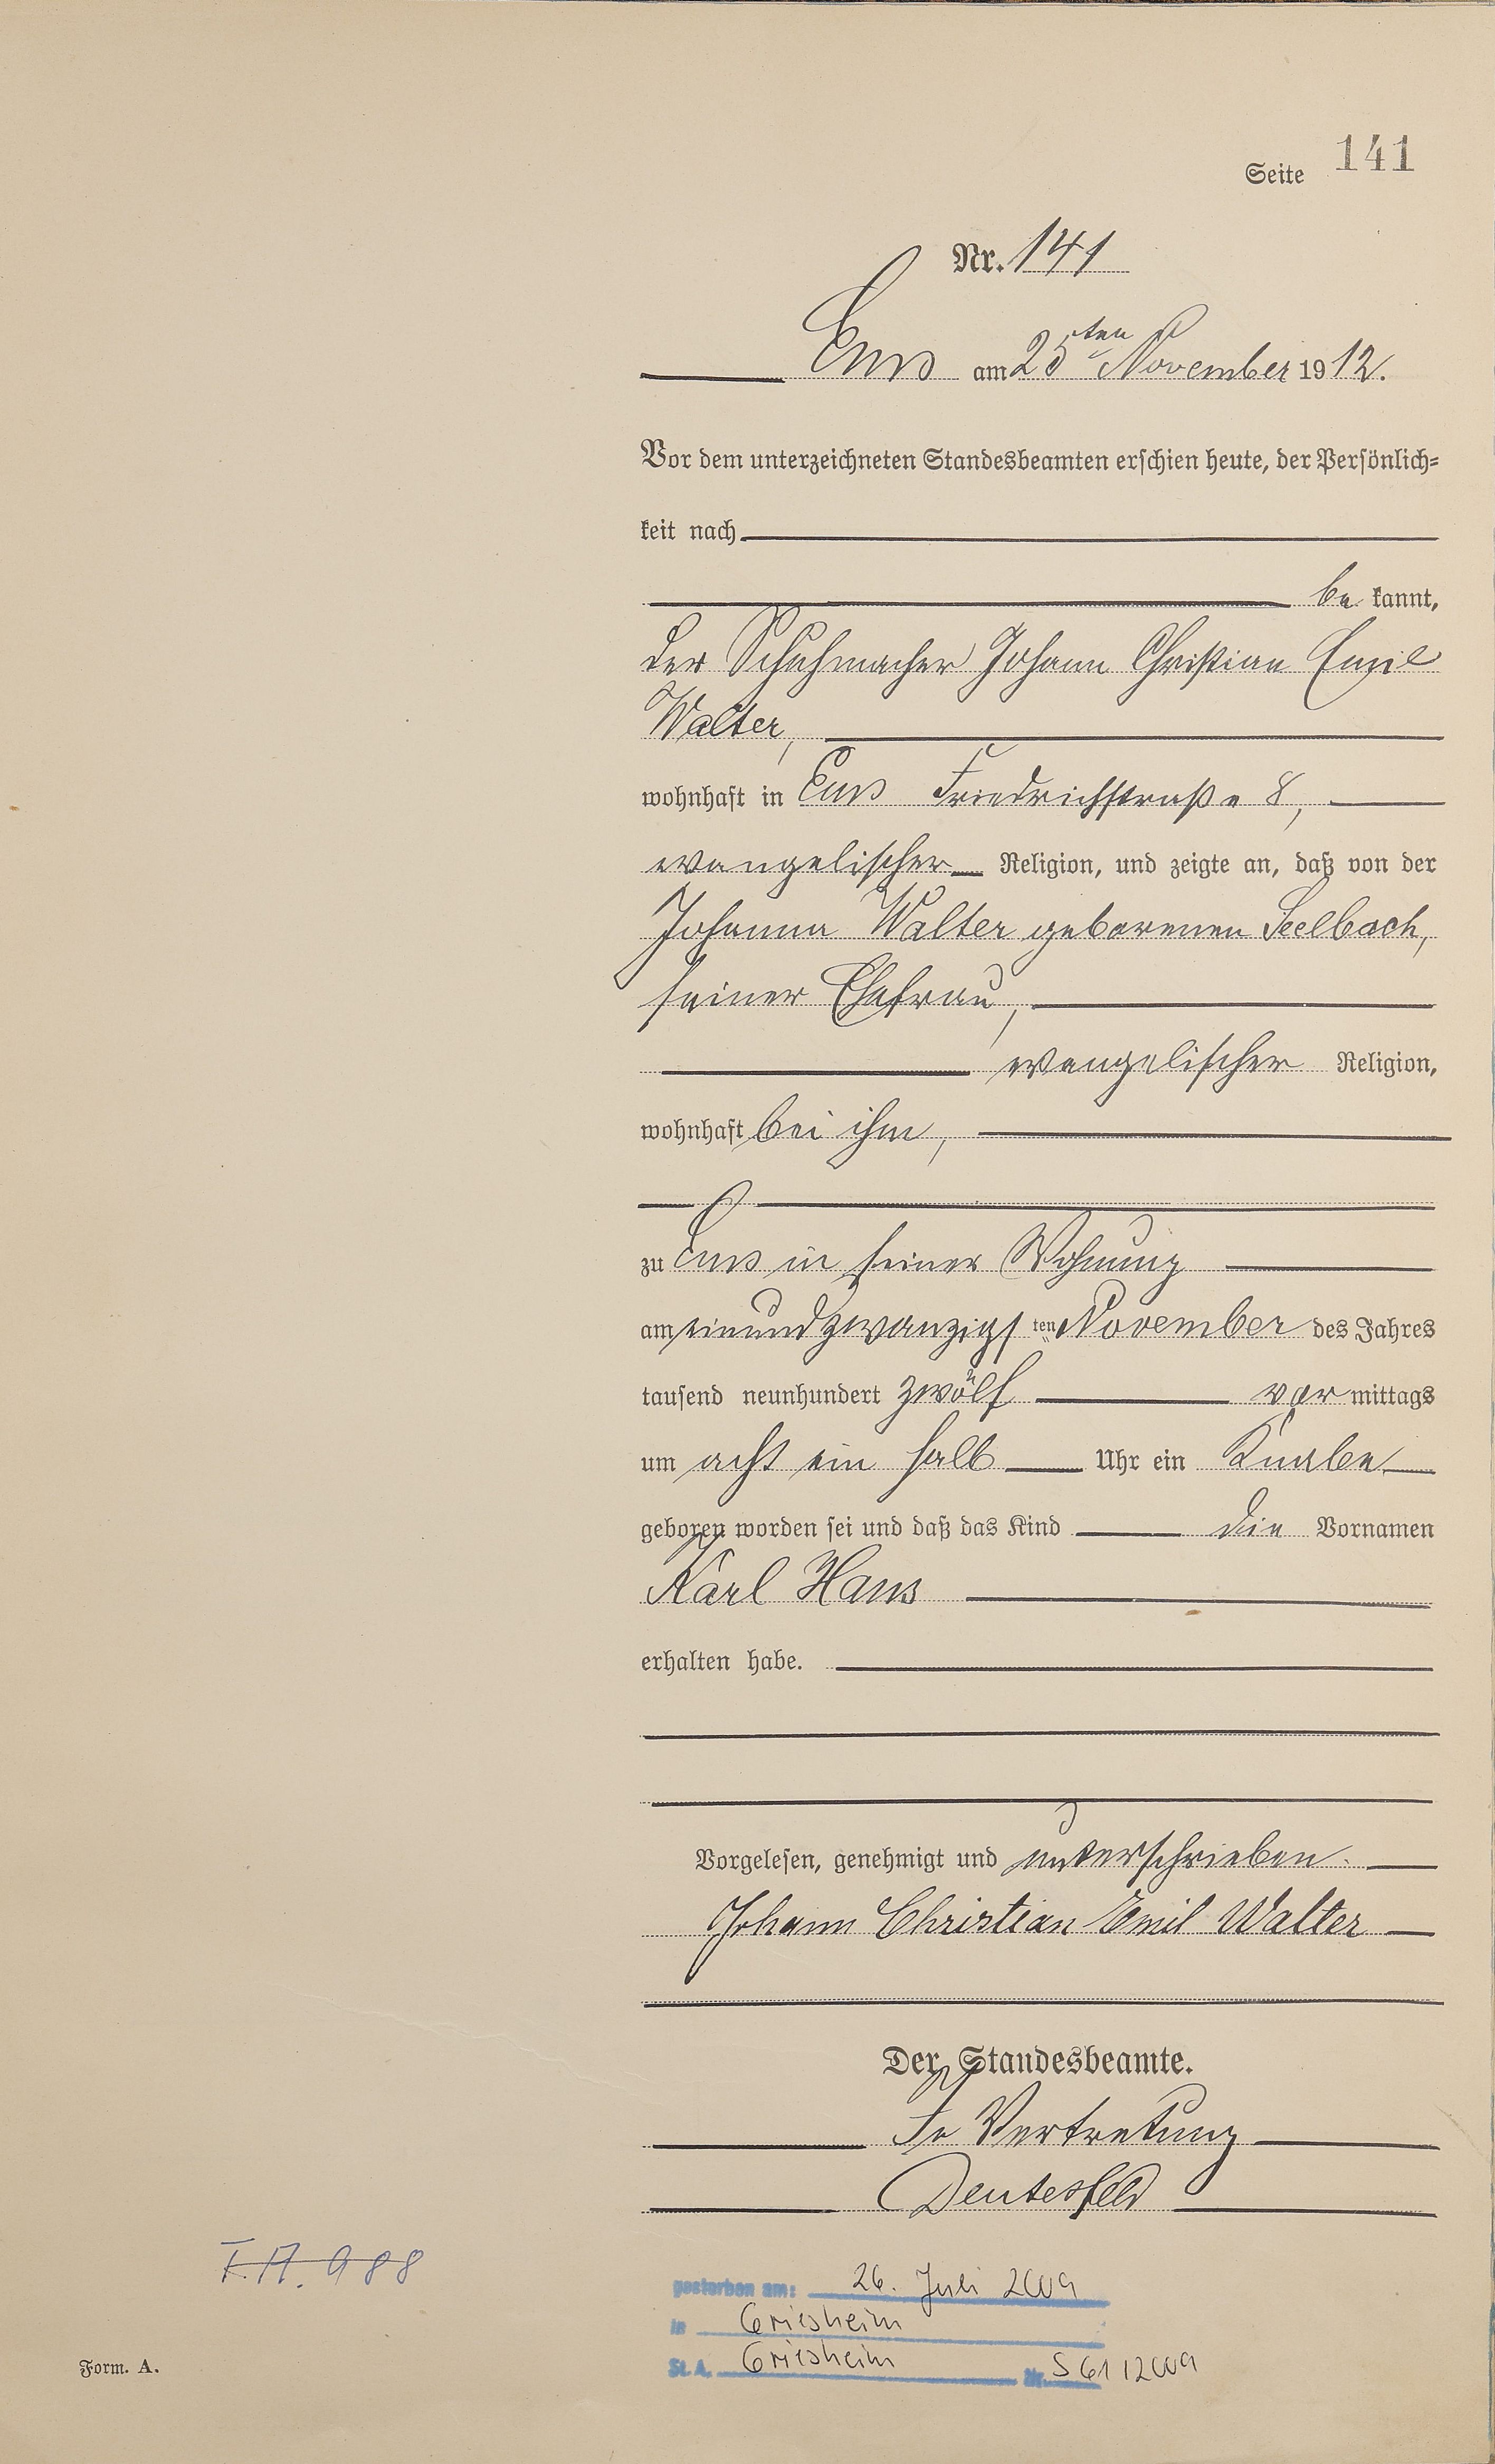 Seite 141
Nr. 141
Ems am 25ten November 1912.
Vor dem unterzeichneten Standesbeamten erschien heute, der Persönlich-
keit nach
be kannt,
der Schuhmacher Johann Christian Emil
Walter,
wohnhaft in Ems Friedrichstraße 8,
evangelischer Religion, und zeigte an, daß von der
Johanna Walter geborenen Seelbach,
seiner Ehefrau,
evangelischer Religion,
wohnhaft bei ihm,
zu Ems in seiner Wohnung
am einundzwanzigs ten November des Jahres
tausend neunhundert zwölf vor mittags
um acht ein halb Uhr ein Knabe
geboren worden sei und daß das Kind die Vornamen
Karl Hans
erhalten habe.
Vorgelesen, genehmigt und unterschrieben.
Johann Christian Emil Walter
Der Standesbeamte.
In Vertretung
Deutesfeld
F.A. 988
gestorben am: 26. Juli 2009
in Griesheim
St.A. Griesheim Nr. S 61/2009
Form. A.